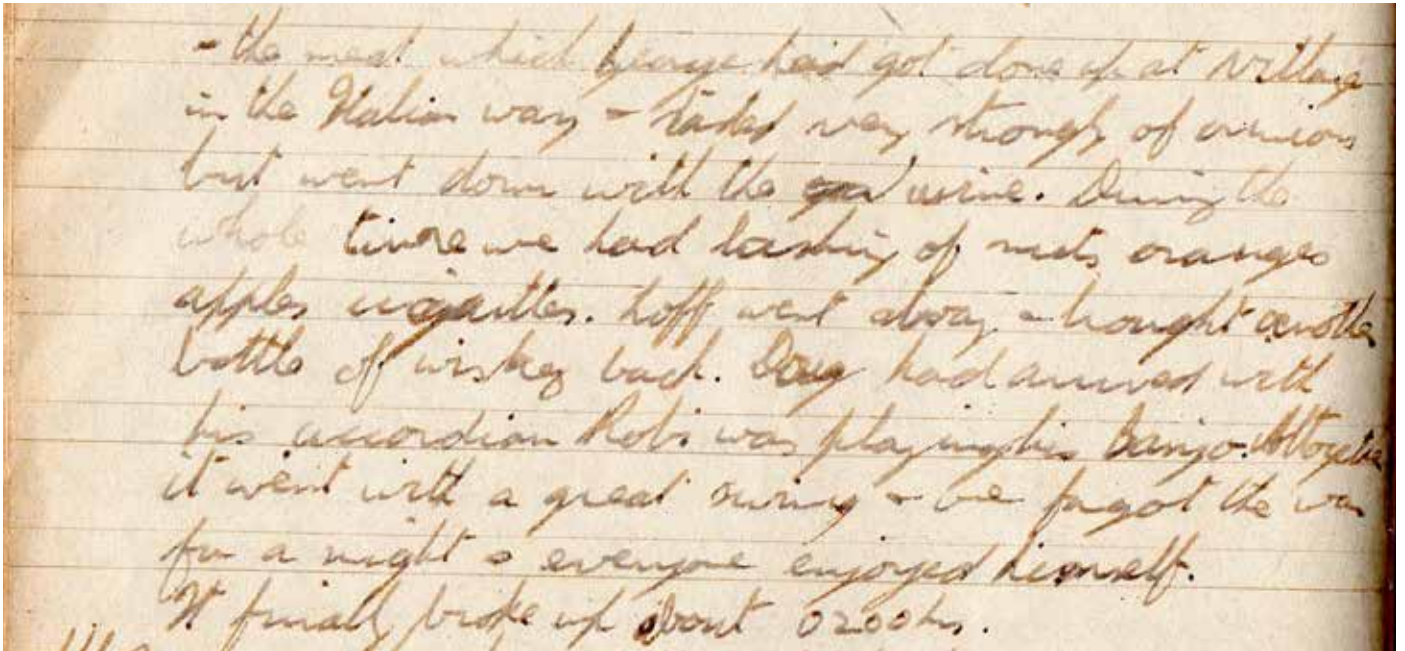 - the meat which George had got done up at village
in the Italian way - tasted very strongly of onions
but went down with the wine. During the
whole time we had lashing of nuts, oranges
apples cigarettes. Loff went away & brought another
bottle of wiskey back. Doug had arrived with
his accordian Robs was playing his Banjo. Altogether
it went with a great swing & we forgot the war
for a night & everyone enjoyed himself.
It finally broke up about 0200hrs.